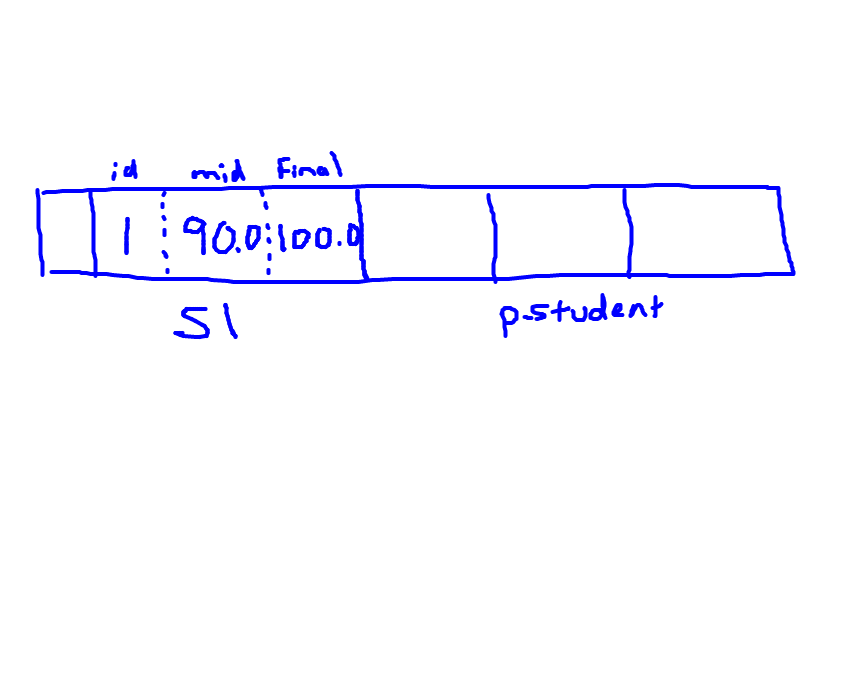 id mid Final
1 90.0 100.0
S1 p-student